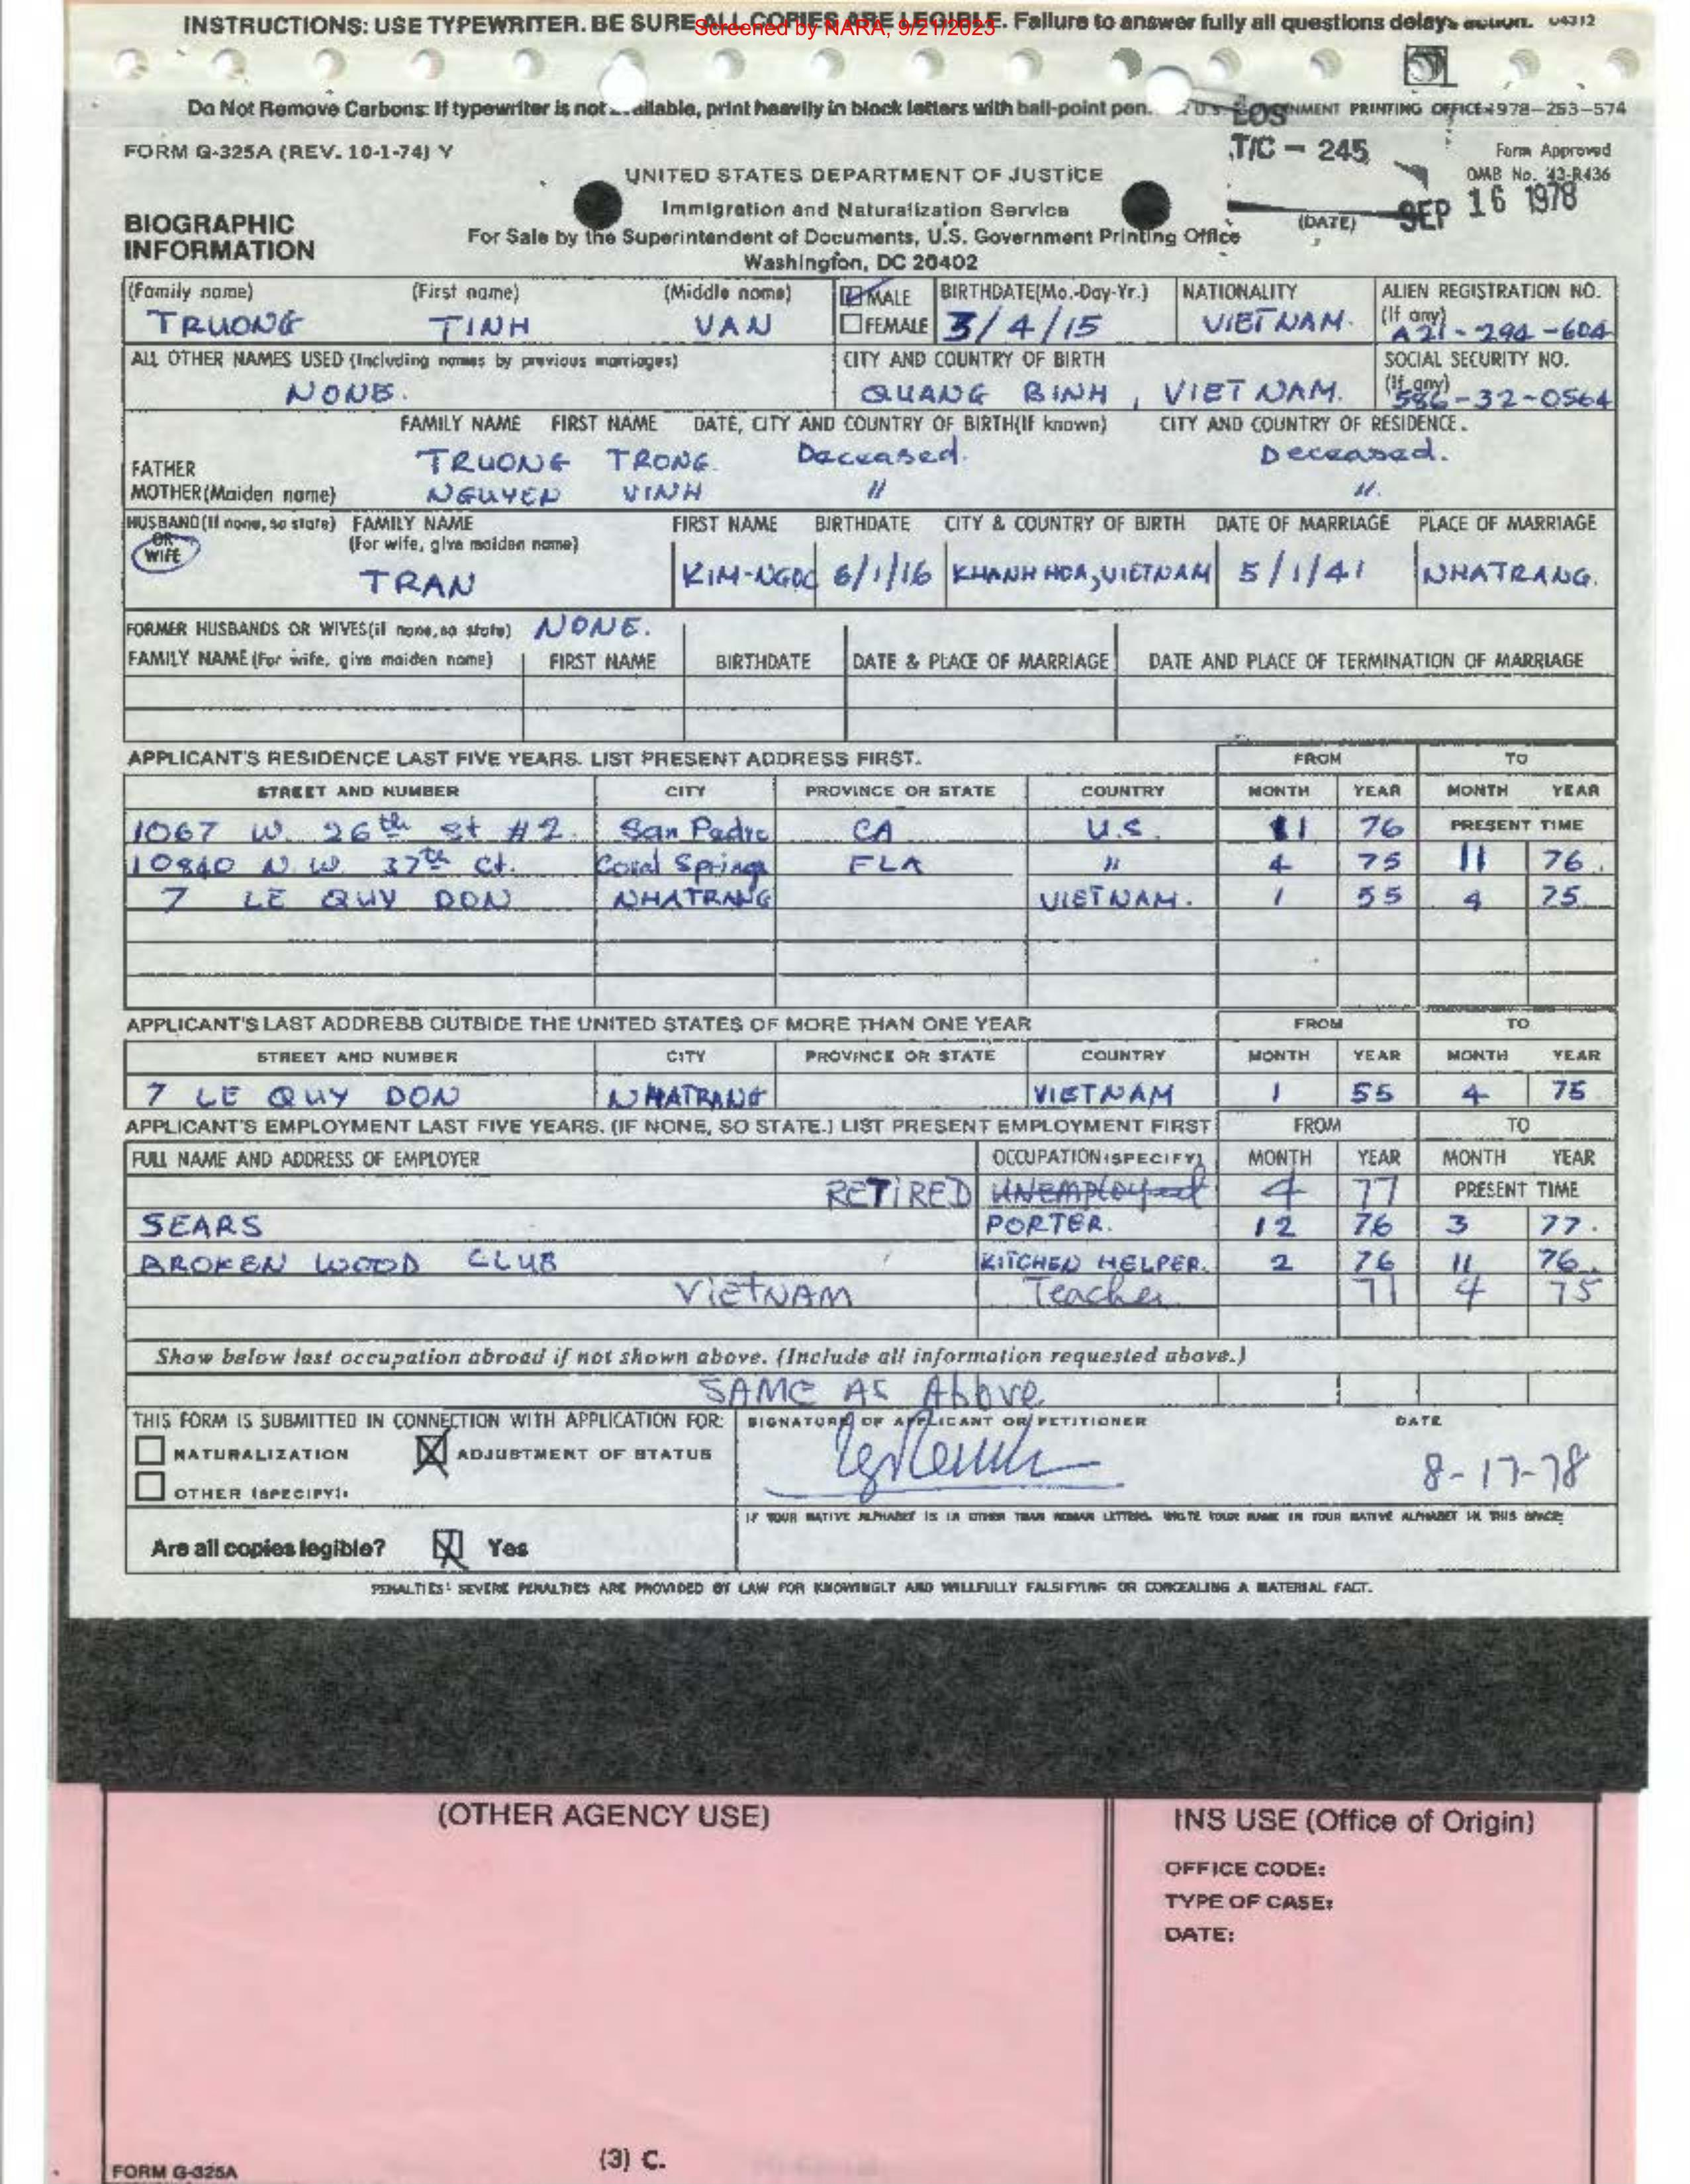 INSTRUCTIONS: USE TYPEWRITER. BE SURE ALL COPIES ARE LEGIBLE. Failure to answer fully all questions delays action. 04312
Screened by NARA, 9/21/2023
Do Not Remove Carbons: If typewriter is not available, print heavily in block letters with ball-point pen. U.S. GOVERNMENT PRINTING OFFICE 1978-253-574
LOS
FORM G-325A (REV. 10-1-74) Y T/C - 245 Form Approved
UNITED STATES DEPARTMENT OF JUSTICE OMB No. 43-R436
Immigration and Naturalization Service (DATE) SEP 16 1978
BIOGRAPHIC INFORMATION
For Sale by the Superintendent of Documents, U.S. Government Printing Office
Washington, DC 20402
(Family name) (First name) (Middle name) MALE BIRTHDATE(Mo.-Day-Yr.) NATIONALITY ALIEN REGISTRATION NO.
TRUONG TINH VAN FEMALE 3/4/15 VIETNAM. (If any) A21-294-604
ALL OTHER NAMES USED (Including names by previous marriages) CITY AND COUNTRY OF BIRTH SOCIAL SECURITY NO.
NONE. QUANG BINH, VIET NAM. (If any) 586-32-0564
FAMILY NAME FIRST NAME DATE, CITY AND COUNTRY OF BIRTH(If known) CITY AND COUNTRY OF RESIDENCE.
FATHER TRUONG TRONG. Deceased. Deceased.
MOTHER(Maiden name) NGUYEN VINH " ".
HUSBAND(If none, so state) FAMILY NAME FIRST NAME BIRTHDATE CITY & COUNTRY OF BIRTH DATE OF MARRIAGE PLACE OF MARRIAGE
OR (For wife, give maiden name)
WIFE TRAN KIM-NGOC 6/1/16 KHANH HOA, VIETNAM 5/1/41 NHATRANG.
FORMER HUSBANDS OR WIVES(if none, so state) NONE.
FAMILY NAME (For wife, give maiden name) FIRST NAME BIRTHDATE DATE & PLACE OF MARRIAGE DATE AND PLACE OF TERMINATION OF MARRIAGE
APPLICANT'S RESIDENCE LAST FIVE YEARS. LIST PRESENT ADDRESS FIRST. FROM TO
STREET AND NUMBER CITY PROVINCE OR STATE COUNTRY MONTH YEAR MONTH YEAR
1067 W. 26th St #2. San Pedro CA U.S. 11 76 PRESENT TIME
10840 N.W. 37th Ct. Coral Springs FLA " 4 75 11 76.
7 LE QUY DON NHATRANG VIETNAM. 1 55 4 75.
APPLICANT'S LAST ADDRESS OUTSIDE THE UNITED STATES OF MORE THAN ONE YEAR FROM TO
STREET AND NUMBER CITY PROVINCE OR STATE COUNTRY MONTH YEAR MONTH YEAR
7 LE QUY DON NHATRANG VIETNAM 1 55 4 75
APPLICANT'S EMPLOYMENT LAST FIVE YEARS. (IF NONE, SO STATE.) LIST PRESENT EMPLOYMENT FIRST FROM TO
FULL NAME AND ADDRESS OF EMPLOYER OCCUPATION (SPECIFY) MONTH YEAR MONTH YEAR
RETIRED UNEMPLOYED 4 77 PRESENT TIME
SEARS PORTER. 12 76 3 77.
BROKEN WOOD CLUB KITCHEN HELPER. 2 76 11 76.
VIETNAM Teacher 71 4 75
Show below last occupation abroad if not shown above. (Include all information requested above.)
SAME AS Above
THIS FORM IS SUBMITTED IN CONNECTION WITH APPLICATION FOR: SIGNATURE OF APPLICANT OR PETITIONER DATE
NATURALIZATION ADJUSTMENT OF STATUS 8-17-78
OTHER (SPECIFY):
IF YOUR NATIVE ALPHABET IS IN OTHER THAN ROMAN LETTERS, WRITE YOUR NAME IN YOUR NATIVE ALPHABET IN THIS SPACE:
Are all copies legible? Yes
PENALTIES: SEVERE PENALTIES ARE PROVIDED BY LAW FOR KNOWINGLY AND WILLFULLY FALSIFYING OR CONCEALING A MATERIAL FACT.
(OTHER AGENCY USE) INS USE (Office of Origin)
OFFICE CODE:
TYPE OF CASE:
DATE:
FORM G-325A (3) C.